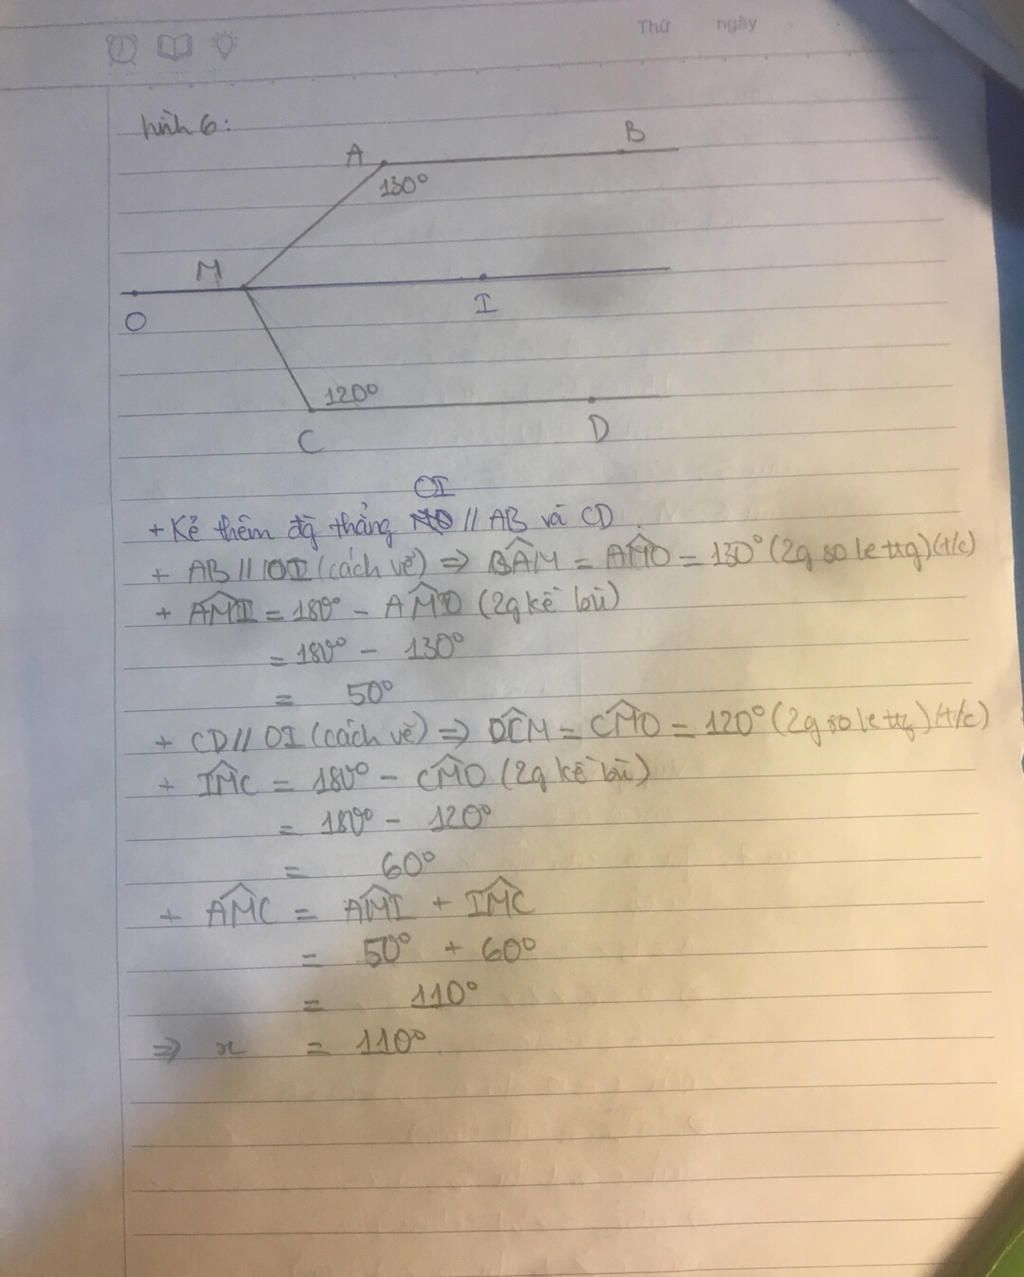 Thứ ngày
hình 6:
A B
130°
M
O I
120°
C D
OI
+ Kẻ thêm đg thẳng // AB và CD.
+ AB // OI (cách vẽ) ⇒ BÂM = AM̂O = 130° (2g so le ttg) (t/c)
+ AM̂I = 180° - AM̂O (2g kề bù)
= 180° - 130°
= 50°
+ CD // OI (cách vẽ) ⇒ DĈM = CM̂O = 120° (2g so le ttg) (t/c)
+ IM̂C = 180° - CM̂O (2g kề bù)
= 180° - 120°
= 60°
+ AM̂C = AM̂I + IM̂C
= 50° + 60°
= 110°
⇒ x = 110°